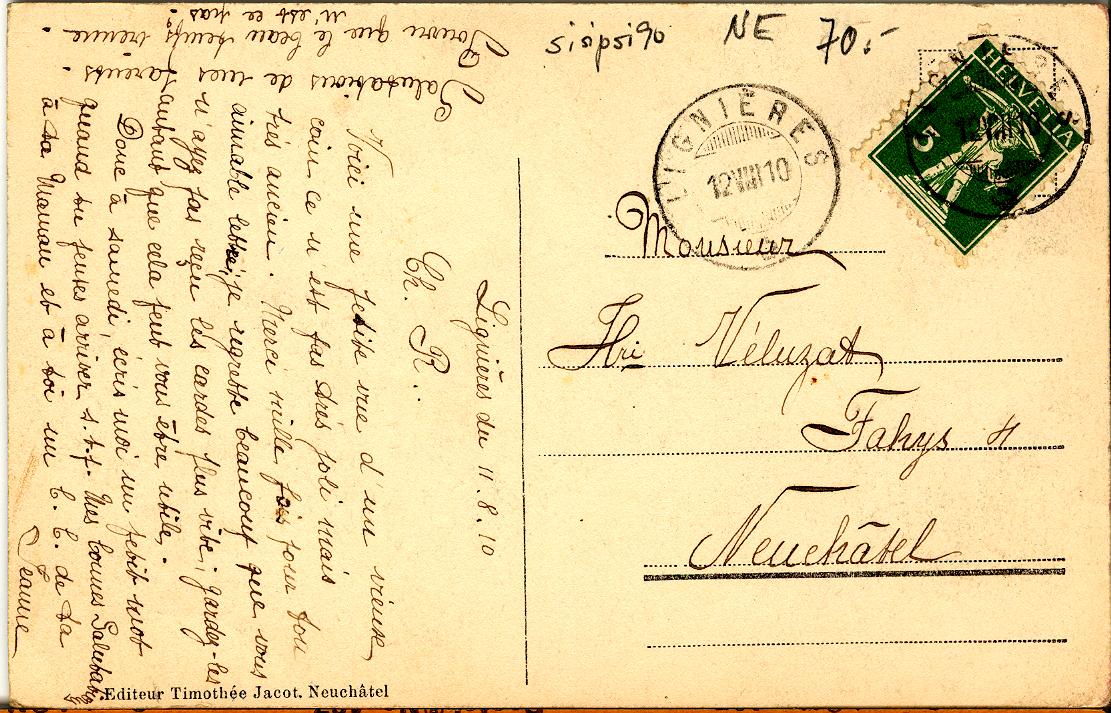 sispsi90 NE 70.-
HELVETIA
5
LIGNIÈRES
12 VIII 10
Monsieur
Hri Véluzat
Fahys
Neuchâtel
Lignières du 11.8.10
Ch. R.
Voici une petite vue d'un vieux
coin ce n'est pas très joli mais
très ancien. Merci mille fois pour ton
aimable lettre, je regrette beaucoup que vous
n'ayez pas reçu les cartes plus vite; gardez-les
autant que cela peut vous être utile.
Donc à samedi, écris moi un petit mot
quand tu penses arriver s.t.p. Mes bonnes Salutat.
à ta Maman et à toi un b. b. de ta
Jeanne
Salutations de mes parents.
Pourvu que le beau temps vienne.
n'est ce pas?
Editeur Timothée Jacot. Neuchâtel